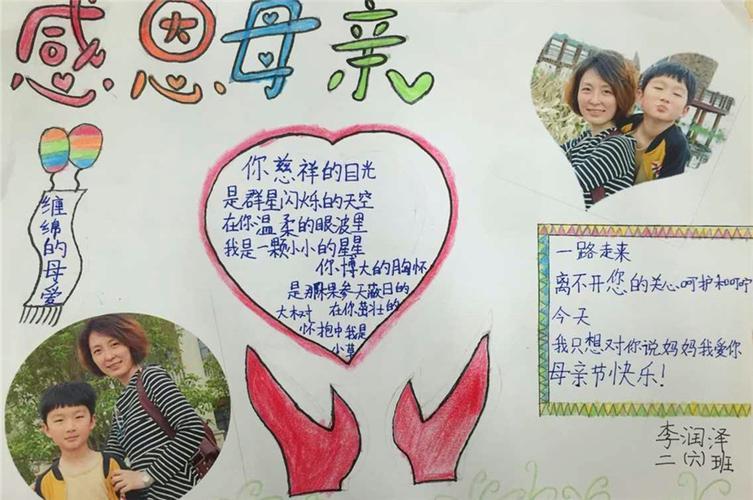 感恩母亲
缠绵的母爱
你慈祥的目光
是群星闪烁的天空
在你温柔的眼波里
我是一颗小小的星星
你博大的胸怀
是那果参天蔽日的
大树 在你茁壮的
怀抱中我是
小草
一路走来
离不开您的关心呵护和叮咛
今天
我只想对你说妈妈我爱你
母亲节快乐!
李润泽
二(六)班